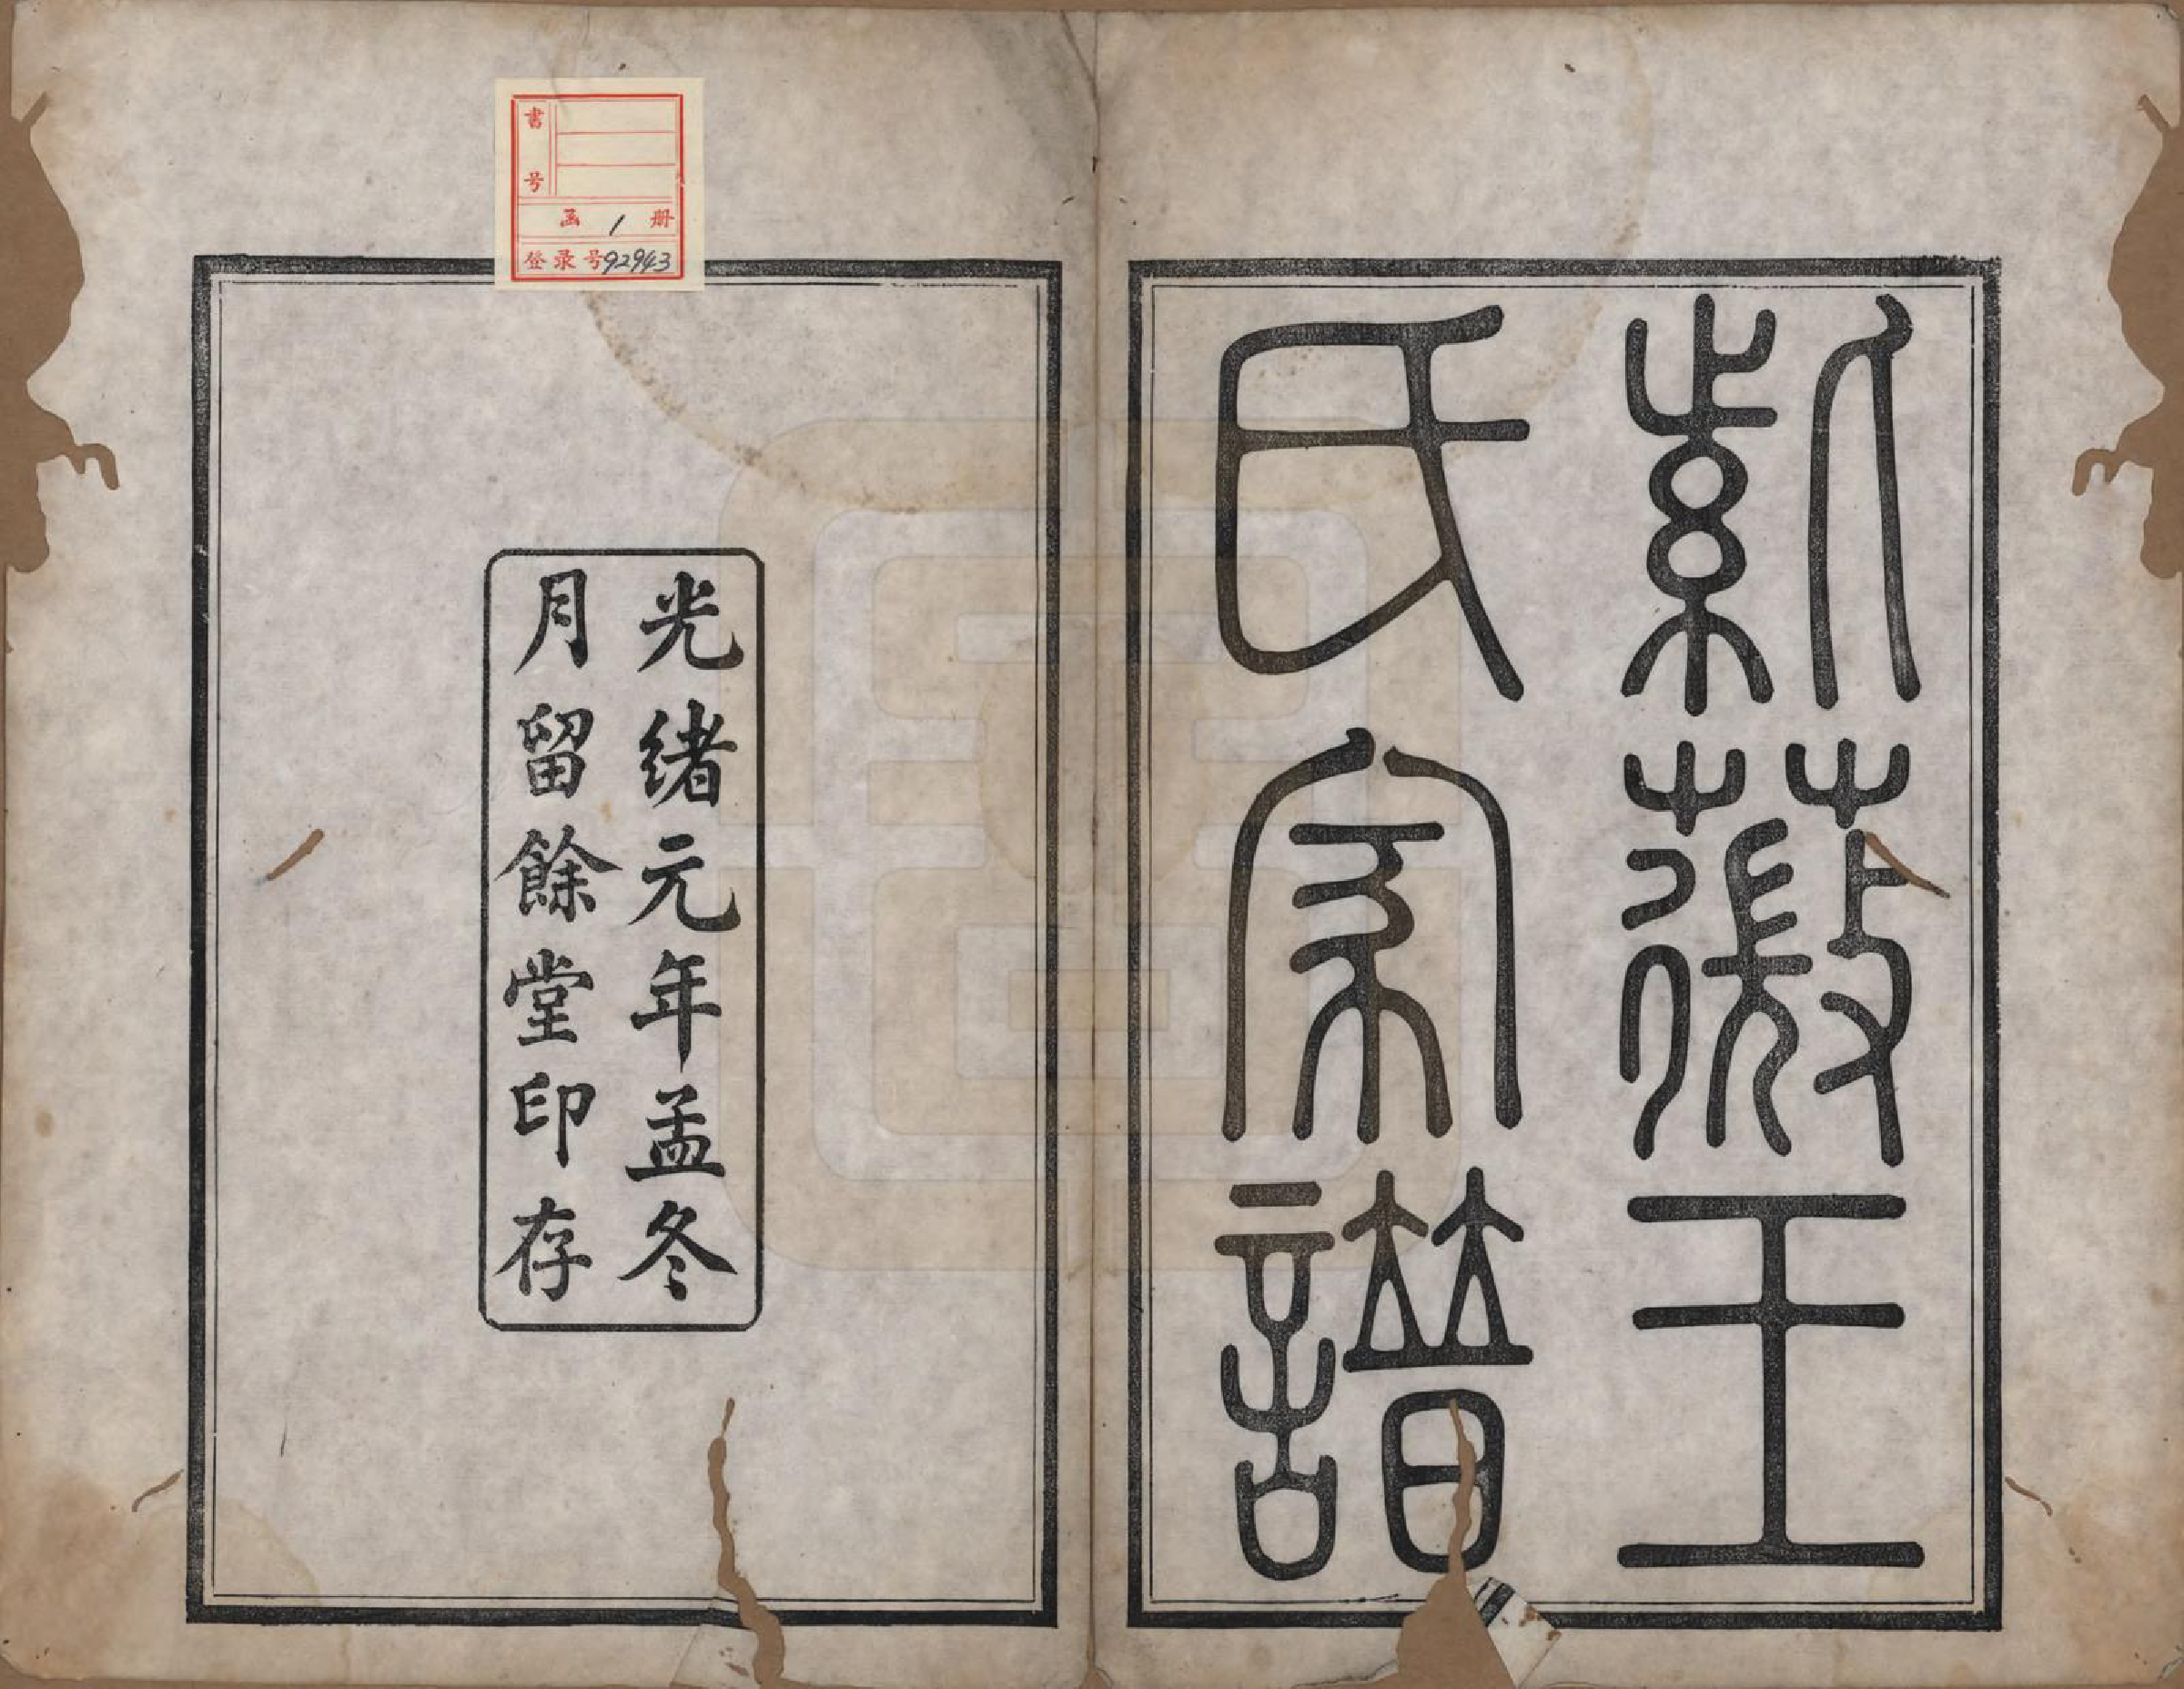 紫薇王
氏家譜
光緒元年孟冬
月留餘堂印存
書号
函 1 册
登录号92943